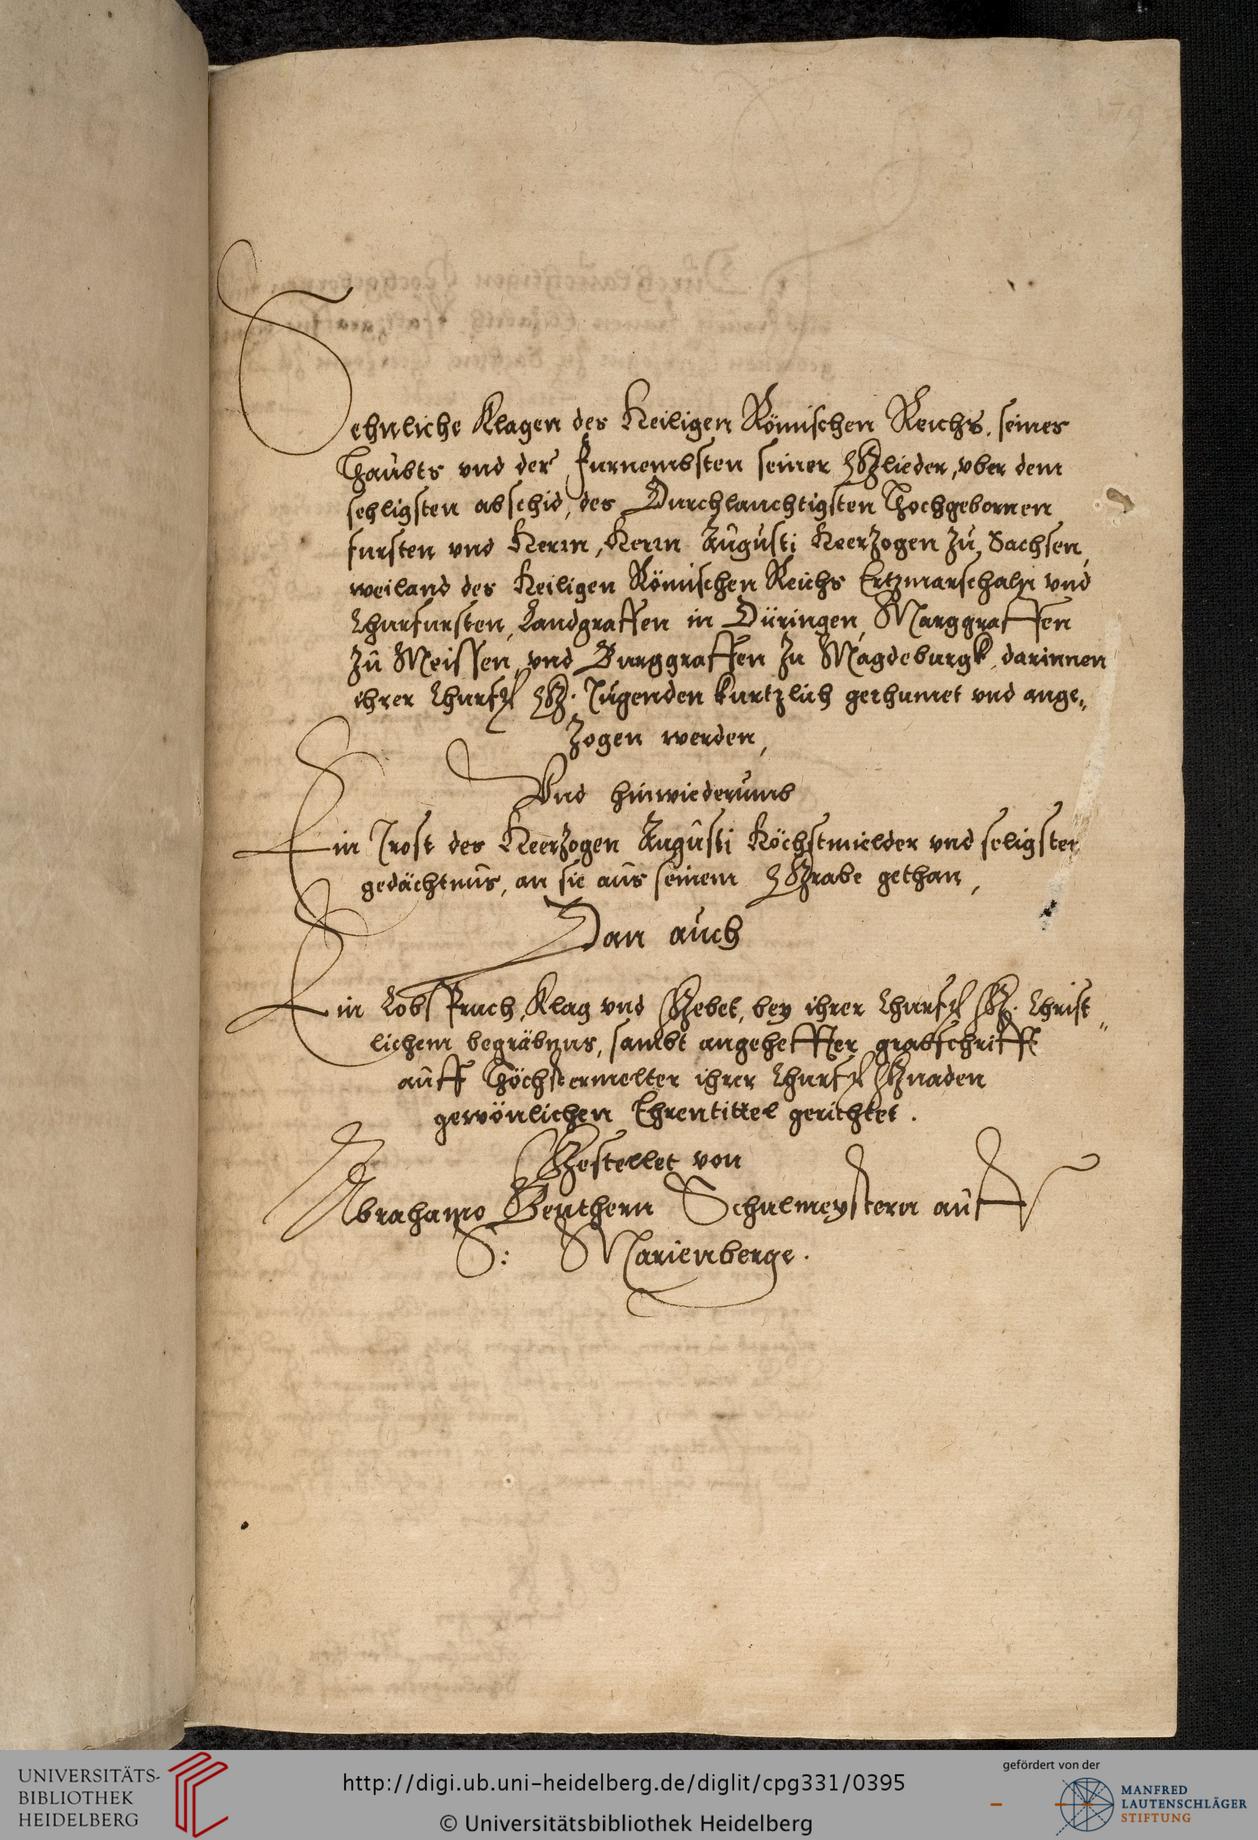 Sehnliche Klagen des Heiligen Römischen Reichs, seines
Haubts vnd der furnembsten seiner Glieder, vber dem
sehligsten abschid, des Durchlauchtigsten Hochgebornen
fursten vnd Herrn, Herrn Augusti Heerzogen zu Sachsen,
weiland des Heiligen Römischen Reichs Ertzmarschaln vnd
Churfursten, Landgraffen in Düringen, Marggraffen
zu Meissen, vnd Burggraffen zu Magdeburgk, darinnen
ihrer Churf. G. Tugenden kurtzlich gerhumet vnd ange„
zogen werden,
Vnd hinwiederumb
Ein Trost des Heerzogen Augusti Höchstmielder vnd seligster
gedächtnus, an sie aus seinem Grabe gethan,
Dan auch
Ein Lobspruch, Klag vnd Gebet, bey ihrer Churf. G. Christ„
lichem begräbnus, sambt angeheffter grabschrifft
auff Höchstermelter ihrer Churf. Gnaden
gewönlichen Ehrentittel gerichtet.
Gestellet von
Abrahamo Beuthern Schulmeystern auff
S: Marienberge.
UNIVERSITÄTS-
BIBLIOTHEK
HEIDELBERG
http://digi.ub.uni-heidelberg.de/diglit/cpg331/0395
© Universitätsbibliothek Heidelberg
gefördert von der
MANFRED
LAUTENSCHLÄGER
STIFTUNG